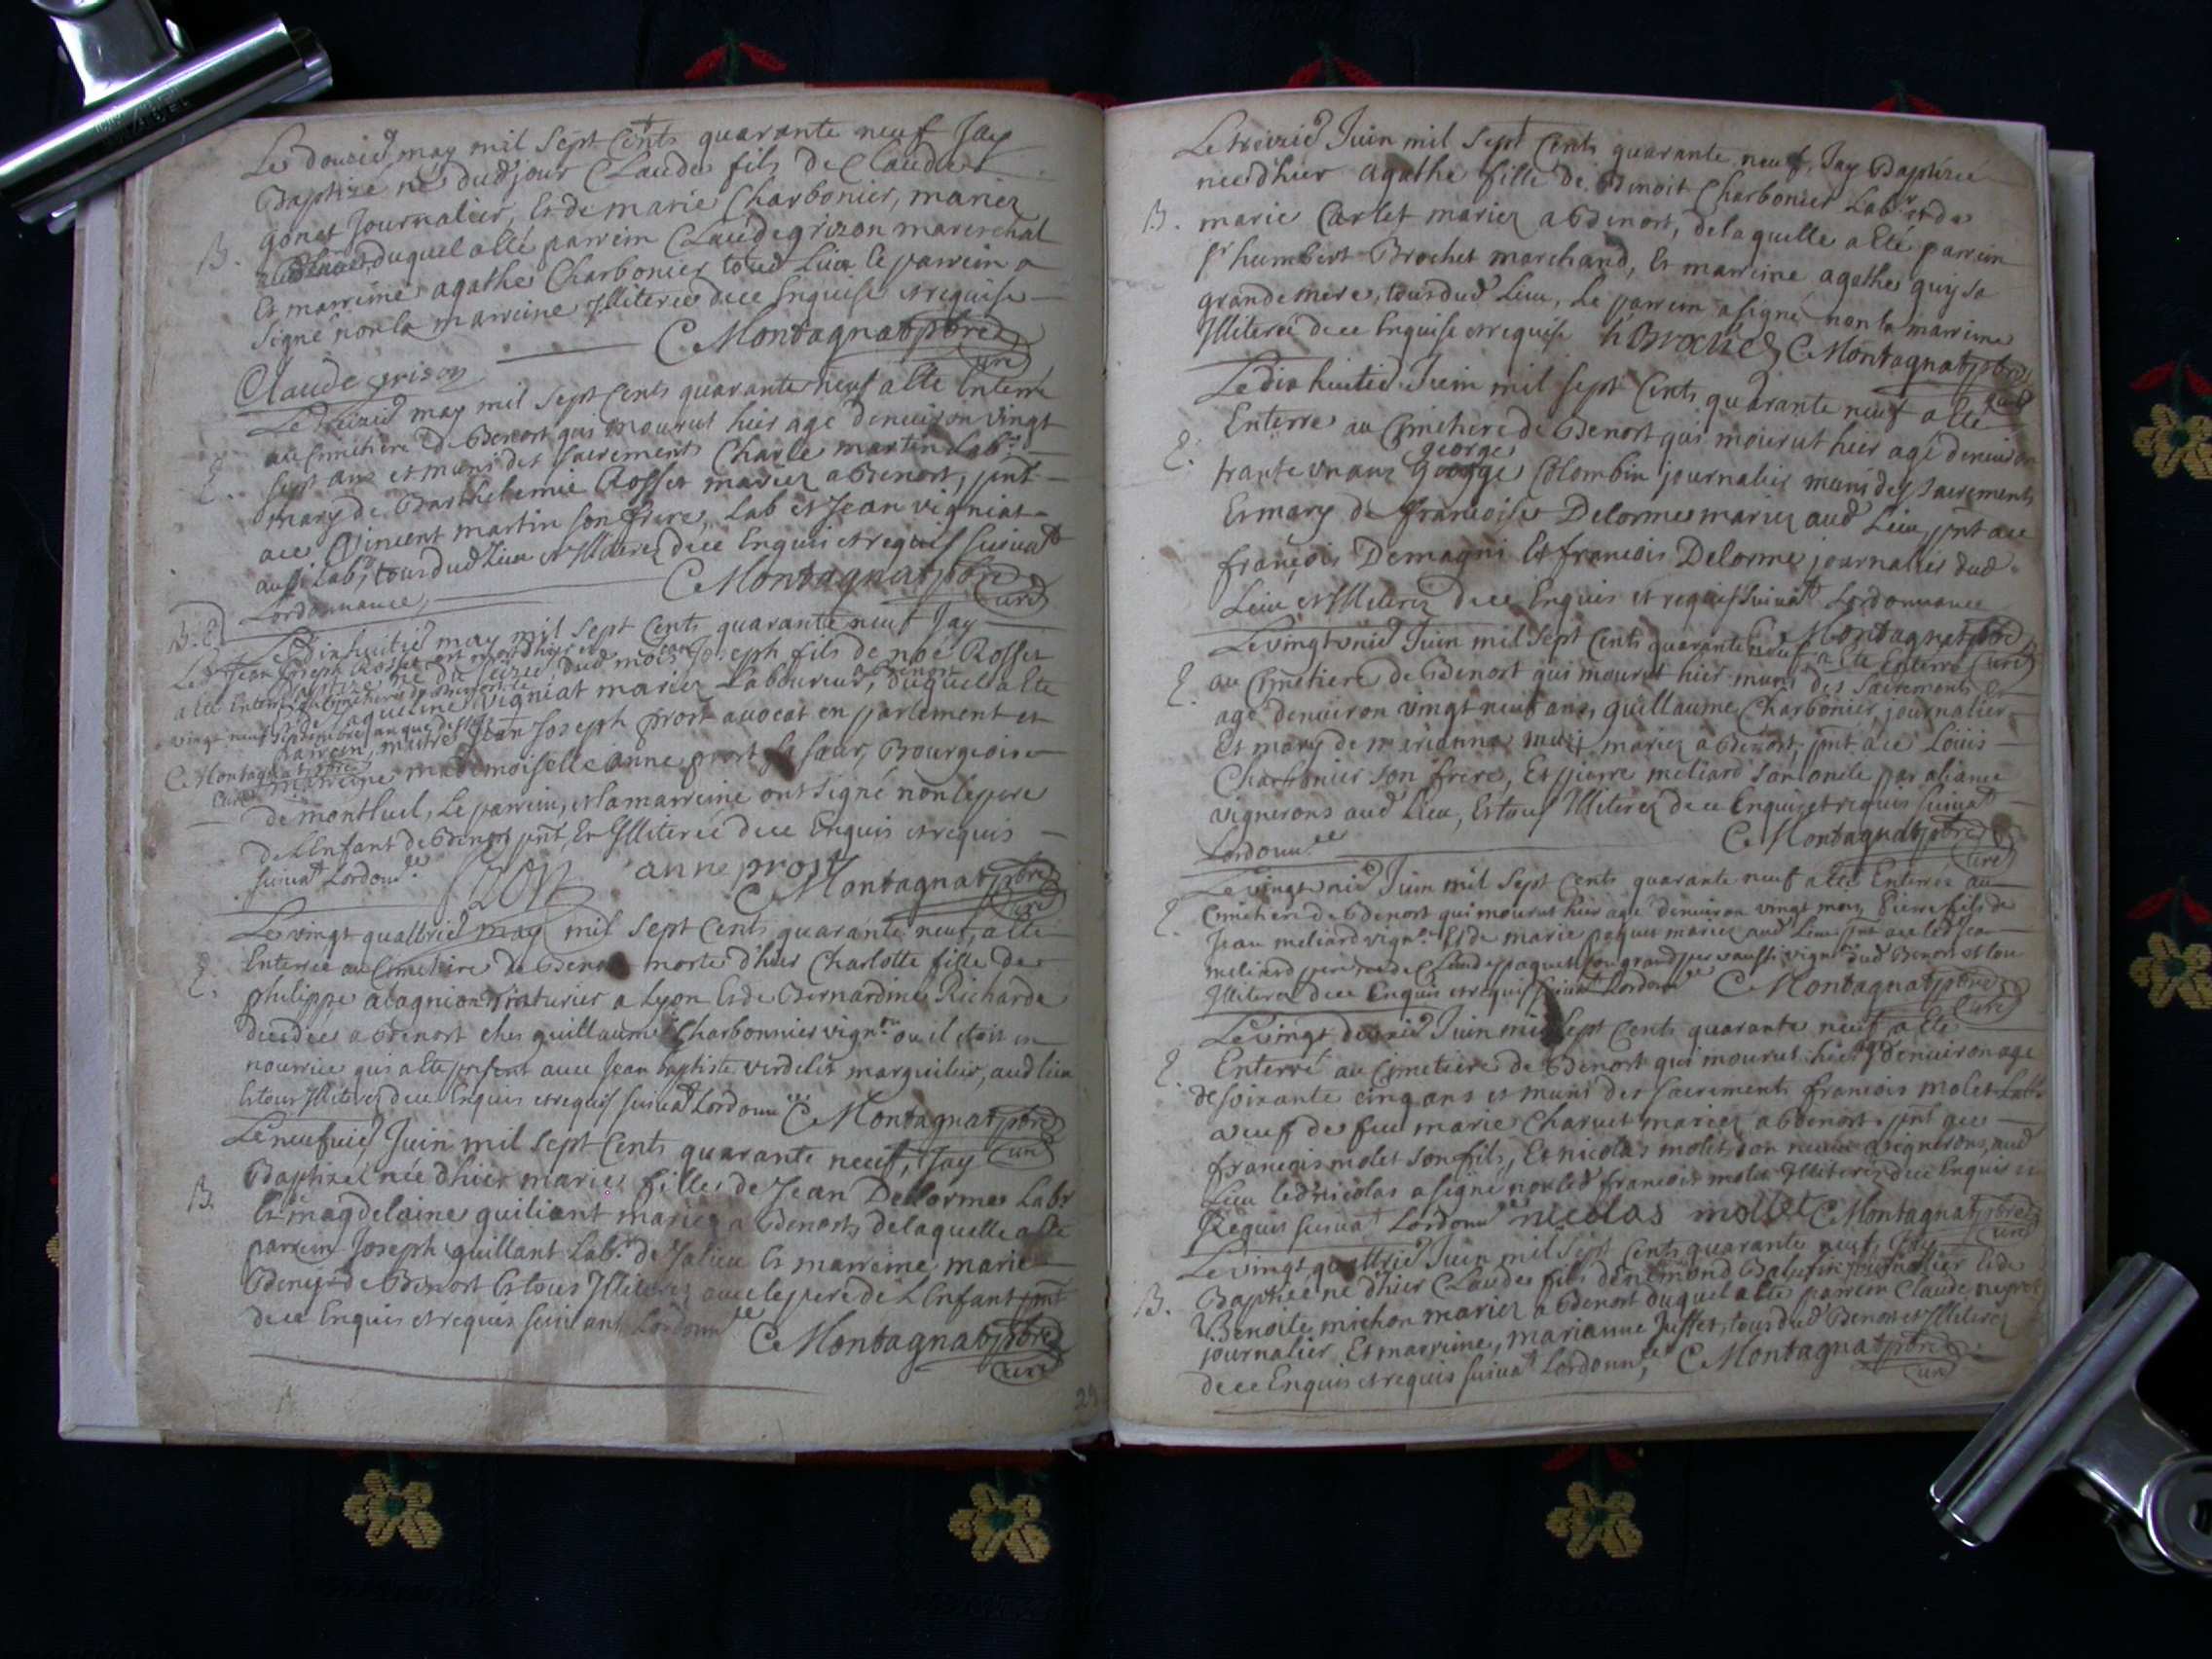 Le douzie may mil sept cents quarante neuf Jay
Baptizé né dud jour Claude fils de Claude
B. gonet Journalier, Et de marie Charbonier, mariez
duquel a Eté parrein Claude grizon mareschal
Et marreine agathe Charbonier tous dud Lieu le parrein a
signé non la marreine Illiteree de ce Enquise et requise
C Montagnat ptre
curé
Claude grison
Le treizie may mil sept cents quarante neuf a Eté Enterré
au Cimetiere de Benost qui mourut hier agé denuiron vingt
E. sept ans et muni des sacrements Charle martin Labr
mary de Barthelemie Rosset mariez a Benost, pnt
a ce Vincent martin son frere, Lab et Jean vigniat
aussi Labr, tous dud Lieu et Illiterez de ce Enquis et requis suiuat
Lordonnance, C Montagnat ptre
curé
B. E Le dixhuitie may mil sept cents quarante neuf Jay
Baptizé né du seizie dud mois Jean Joseph fils de noé Rosset
Led Jean Joseph Rosset est mort
a Eté Enterré
vingt neuf septembre
C Montagnat ptre
curé
Et de Jaqueline vigniat mariez Laboureur, a Benost duquel a Eté
parrein, maitre Jean Joseph prost auocat en parlement et
marreine mademoiselle anne prost sa sœur, Bourgeois
de montluel, Le parrein, et la marreine ont signé non le pere
de LEnfant de Benost pnt, Et Illiteré de ce Enquis et requis
suiuat Lordonnce prost anne prost
C Montagnat ptre
curé
Le vingt quattrie may mil sept cents quarante neuf, a Eté
Enterrée au Cimetiere de Benost morte d'hier Charlotte fille de
E. philippe alagnion Et de Bernardine Richarde
decedee a Benost ches guillaume Charbonnier vignon ou il etoit en
nourrice qui a Eté present auec Jean baptiste verdelet marguilier, aud lieu
Et tous Illiterez de ce Enquis et requis suiuat Lordonnce C Montagnat ptre
curé
Le neufuie Juin mil sept cents quarante neuf, Jay
Baptizé née d'hier marie fille de Jean Delorme Labr
B. Et magdelaine guiliant mariez a Benost, delaquelle a Eté
parrein Joseph guillant Labr de Jalieu Et marreine marie
Benist de Benost Et tous Illiterez auec le pere de LEnfant pnt
de ce Enquis et requis suiuant Lordonnce
C Montagnat ptre
curé
Le treizie Juin mil sept cents quarante neuf, Jay Baptizée
née d'hier agathe fille de Benoit Charbonier Labr et de
B. marie Carlet mariez a Benost, delaquelle a Eté parrein
sr humbert Brochet marchand, Et marreine agathe guy sa
grande mere, tous dud Lieu, Le parrein a signé non la marreine
Illiterée de ce Enquise et requise h Brochet C Montagnat ptre
curé
Le dix huitie Juin mil sept cents quarante neuf a Eté
Enterré au Cimetiere de Benost qui mourut hier agé denuiron
george
E. trante un ans george Colombin journalier muni des sacrements
Et mary de francoise Delorme mariez aud Lieu, pnt a ce
françois Demagni Et francois Delorme journalier dud
Lieu et Illiterez de ce Enquis et requis suiuat Lordonnance
C Montagnat ptre
curé
Le vingt unie Juin mil sept cents quarante neuf a Eté Enterré
E. au Cimetiere de Benost qui mourut hier muni des sacrements Et
agé denuiron vingt neuf ans, guillaume Charbonier, journalier
Et mary de marianne mariez a Benost, pnt a ce Louis
Charbonier son frere, Et pierre meliard son oncle par aliance
vignerons aud Lieu, Et tous Illiterez de ce Enquis et requis suiuat
Lordonnce C Montagnat ptre
curé
Le vingt unie Juin mil sept cents quarante neuf a Eté Enterré au
E. Cimetiere de Benost qui mourut hier agé denuiron vingt mois Pierre fils de
Jean meliard vignon Et de marie paquet mariez aud Lieu pnt a ce led Jean
meliard pere et de Claude paquet son grand pere aussi vignon dud Benost et tous
Illiterez de ce Enquis et requis suiuat Lordonnce C Montagnat ptre
curé
Le vingt deuxie Juin mil sept cents quarante neuf a Eté
E. Enterré au Cimetiere de Benost qui mourut hier denuiron age
de soixante cinq ans et muni des sacrements francois molet Labr
veuf de feu marie Charuet mariez a Benost. pnt a ce
francois molet son fils, Et nicolas molet son neueu vignerons, aud
Lieu led nicolas a signé non led francois molet Illiterez de ce Enquis et
Requis suiuat Lordonnce nicolas mollet C Montagnat ptre
curé
Le vingt quattrie Juin mil sept cents quarante neuf, Jay
Baptizé né d'hier Claude fils denemond journalier Et de
B. Benoite michon mariez a Benost duquel a Eté parrein Claude
journalier Et marreine, marianne Juffet, tous dud Benost et Illiterez
de ce Enquis et requis suiuat Lordonnce, C Montagnat ptre
curé